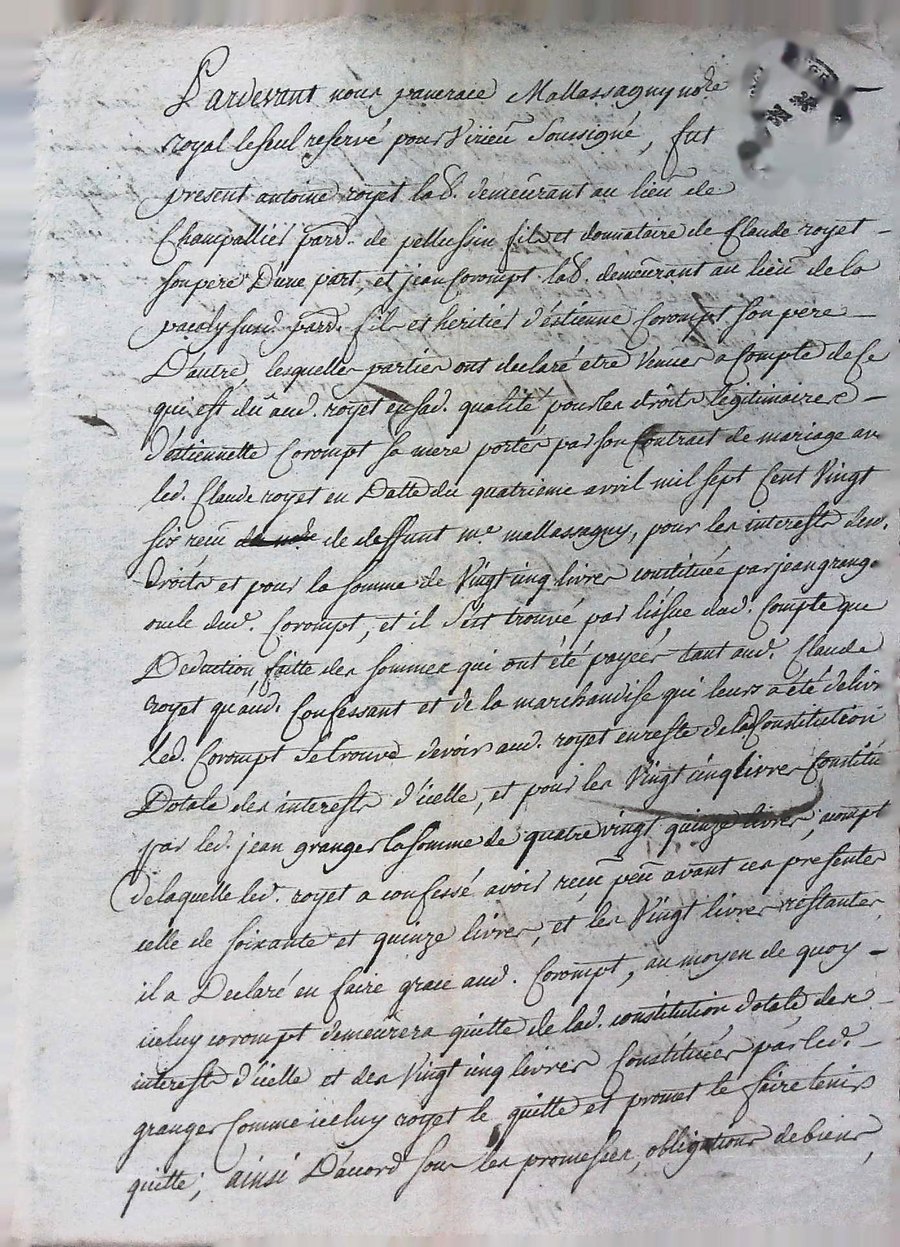 Pardevant nous pancrace Mallassagny no.re
royal le seul reservé pour Virieu Soussigné, fut
present antoine royet lab. demeurant au lieu de
Champallier parr. de pellussin fils et donnataire de Claude royet
son pere D'une part, et jean Corompt lab. demeurant au lieu de la
parr. fils et heritier d'estienne Corompt son pere
D'autre, lesquelles parties ont declaré etre Venues a Compte de Ce
qui est dû aud. royet en sad. qualité pour les droits legitimaires
d'estiennette Corompt sa mere portés par son Contract de mariage av
led. Claude royet en Datte du quatrieme avril mil sept Cent Vingt
six reçu de deffunt me mallassagny, pour les interests desd.
droits et pour la somme de Vingt cinq livres constituée par jean grang.
oncle dud. Corompt, et il s'est trouvé par l'issue dud. Compte que
Deduction faitte des sommes qui ont été payées tant aud. Claude
royet qu'aud. Confessant et de la marchandise qui leurs a été delivr
led. Corompt Se trouve devoir aud. royet en reste de lad Constitution
Dotale des interests d'icelle, et pour les Vingt cinq livres Constitu
par led. jean granger la somme de quatre vingt quinze livres, acompt
de laquelle led. royet a confessé avoir reçu peu avant ces presentes
celle de soixante et quinze livres, et les Vingt livres restantes
il a Declaré en faire grace aud. Corompt, au moyen de quoy
iceluy corompt demeurera quitte de lad. constitution dotale, des
interests d'icelle et des Vingt cinq livres Constituées par led.
granger Comme iceluy royet le quitte et promet le faire tenir
quitte; ainsi D'accord sous les promesses, obligations de biens,